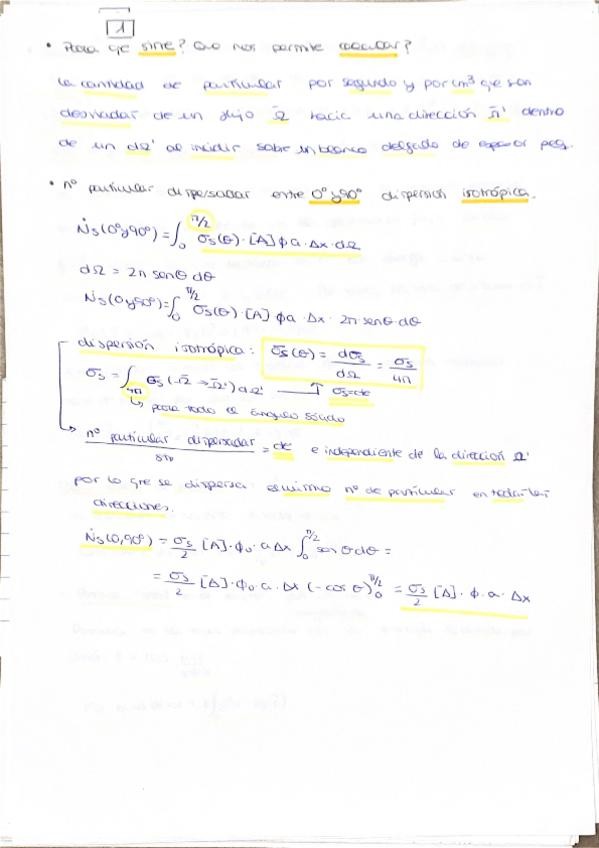 1
• Para qe sirve? Que nos permite calcular?
la cantidad de particulas por segundo y por cm³ que son
desviadas de un flujo Ω̄ hacia una dirección Ω̄' dentro
de un dΩ' al incidir sobre un blanco delgado de espesor peq.
• nº particulas dispersadas entre 0º y 90º dispersión isotrópica.
Ṅs(0º y 90º) = ∫₀^π/2 σs(θ) · [A] φ a · Δx · dΩ
dΩ = 2π senθ dθ
Ṅs(0 y 90º) = ∫₀^π/2 σs(θ) · [A] φ a · Δx · 2π senθ · dθ
dispersión isotrópica: σs(θ) = dσs/dΩ = σs/4π
σs = ∫4π σs(Ω̄ → Ω̄') dΩ' σs = cte
↳ para todo el ángulo sólido
nº particulas dispersadas / srn = cte e independiente de la dirección Ω'
por lo que se dispersa el mismo nº de particulas en todas las
direcciones.
Ṅs(0,90º) = σs/2 [A] · φ₀ · a Δx ∫₀^π/2 senθ dθ =
= σs/2 [A] · φ₀ · a · Δx (-cos θ)₀^π/2 = σs/2 [A] · φ · a · Δx